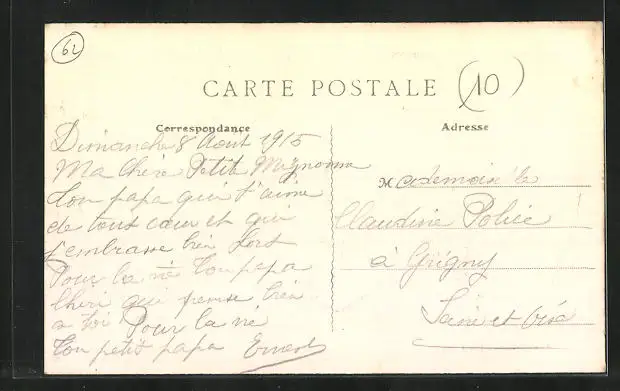 62
CARTE POSTALE
(10)
Correspondance
Adresse
Dimanche 8 Aout 1915
Ma chère Petite Mignonne
ton papa qui t'aime
de tous cœur et qui
t'embrasse bien fort
Pour la vie ton papa
cheri qui pense bien
a toi Pour la vie
ton petit papa Ernest
Mademoiselle
Claudine
à Grigny
Seine et Oise